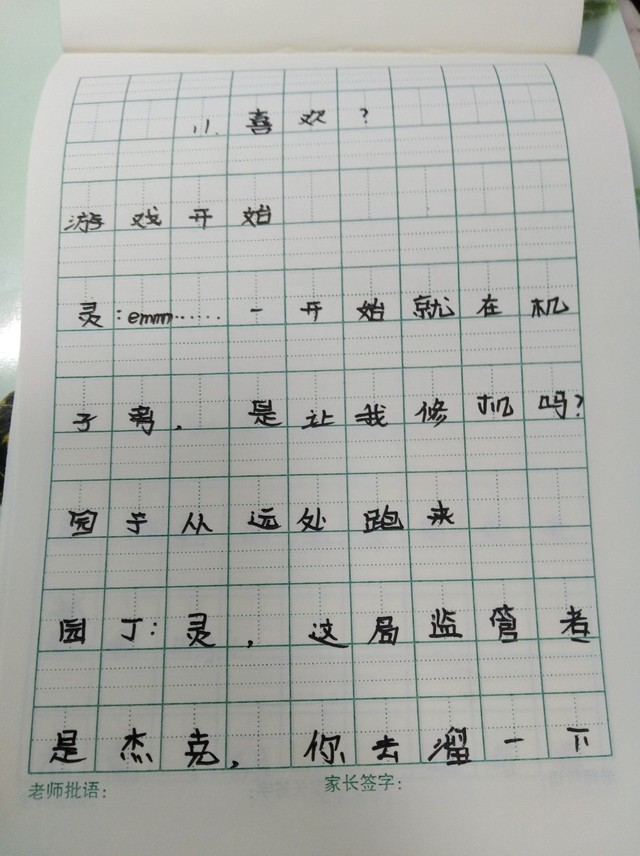 11.喜欢?
游戏开始
灵:emm……一开始就在机
子旁，是让我修机吗?
园丁从远处跑来
园丁:灵，这局监管者
是杰克，你去溜一下
老师批语: 家长签字: